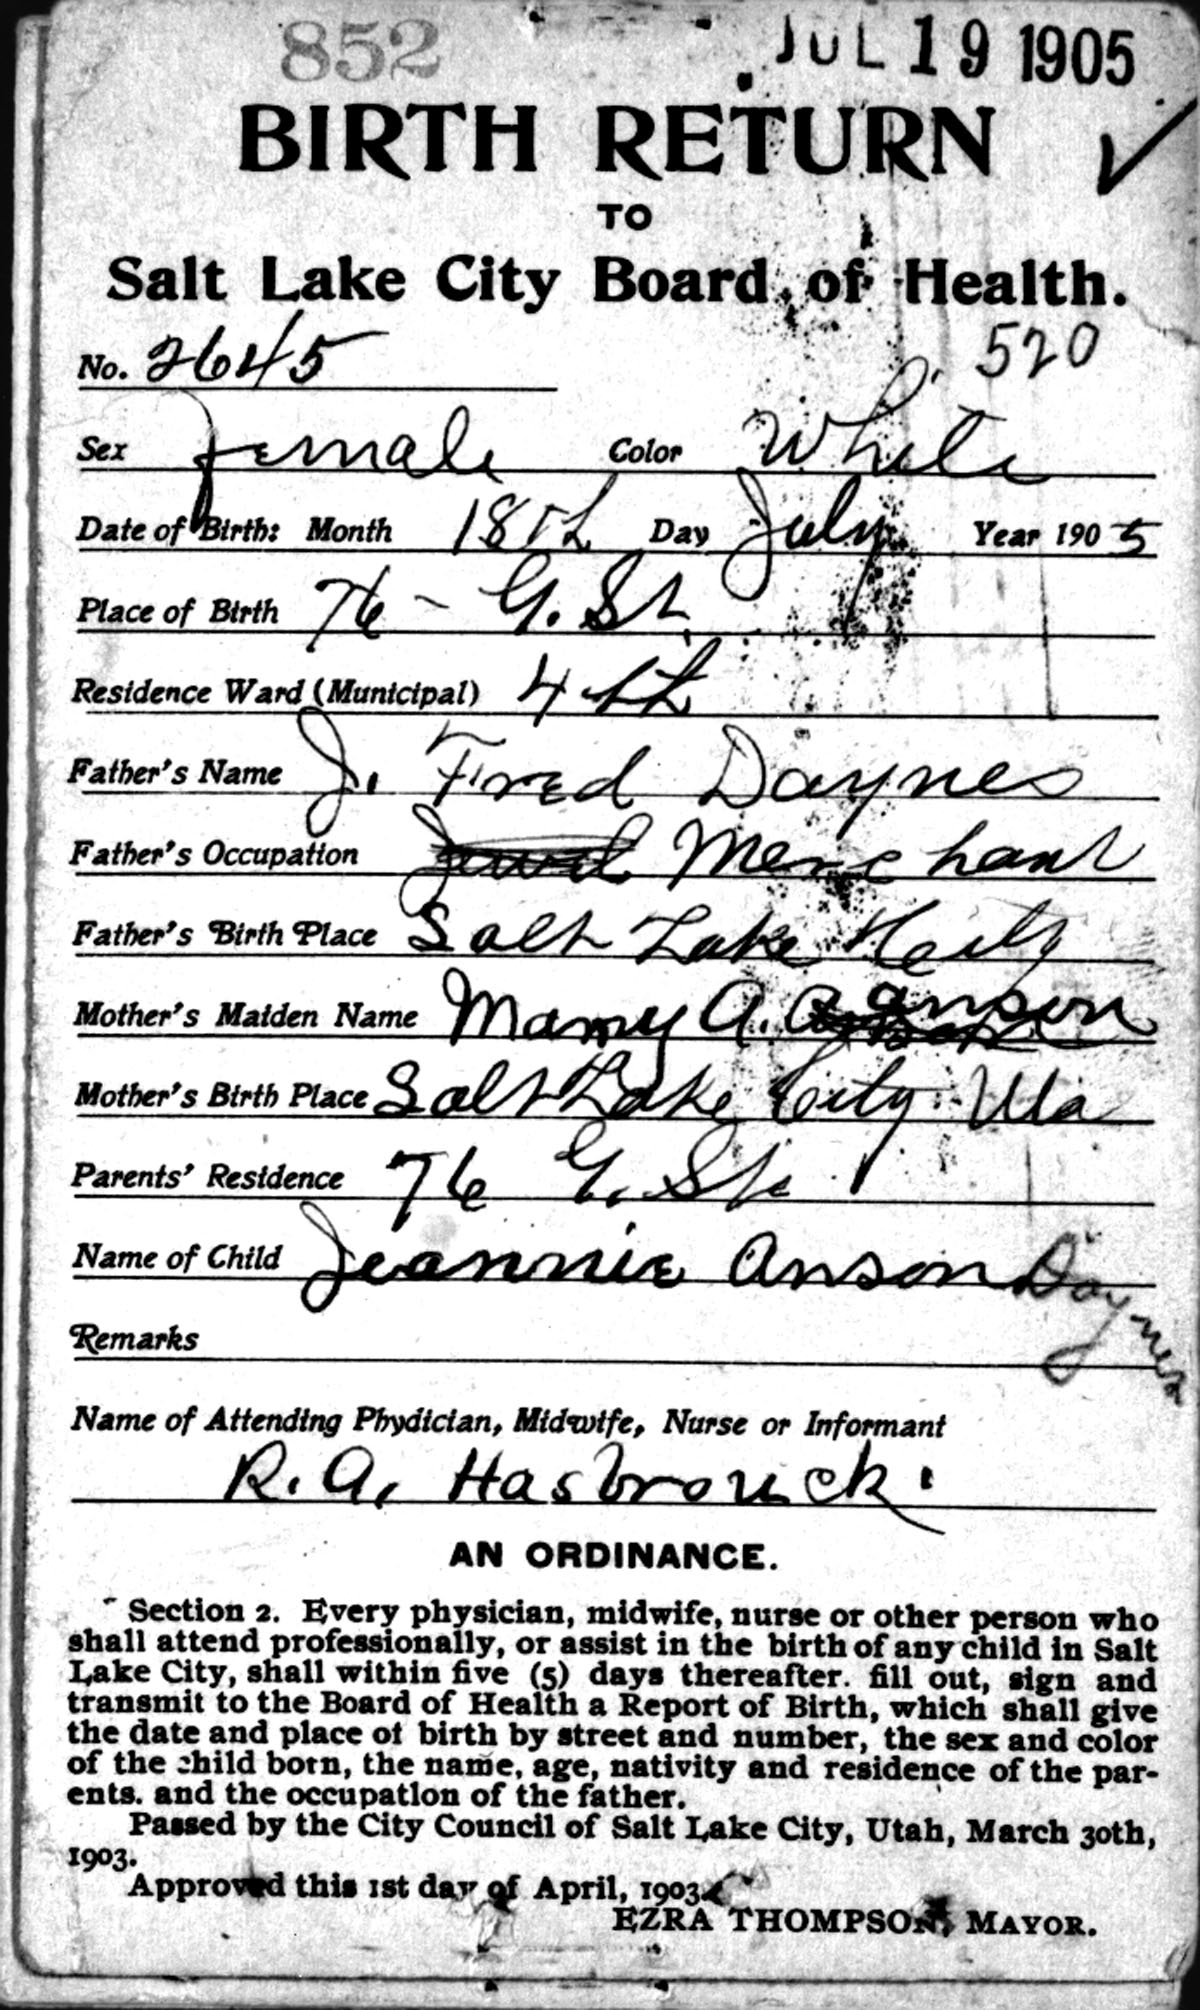 852 JUL 19 1905
BIRTH RETURN
TO
Salt Lake City Board of Health.
No. 2645 520
Sex Female Color White
Date of Birth: Month 18th Day July Year 1905
Place of Birth 76 - G. St.
Residence Ward (Municipal) 4th
Father's Name J. Fred Daynes
Father's Occupation Jewel Merchant
Father's Birth Place Salt Lake City
Mother's Maiden Name Mamy A. Anson
Mother's Birth Place Salt Lake City Uta
Parents' Residence 76 G. St.
Name of Child Jeannie Anson Daynes
Remarks
Name of Attending Phydician, Midwife, Nurse or Informant
R. A. Hasbrouck.
AN ORDINANCE.
Section 2. Every physician, midwife, nurse or other person who
shall attend professionally, or assist in the birth of any child in Salt
Lake City, shall within five (5) days thereafter. fill out, sign and
transmit to the Board of Health a Report of Birth, which shall give
the date and place of birth by street and number, the sex and color
of the child born, the name, age, nativity and residence of the par-
ents. and the occupation of the father.
Passed by the City Council of Salt Lake City, Utah, March 30th,
1903.
Approved this 1st day of April, 1903.
EZRA THOMPSON, MAYOR.